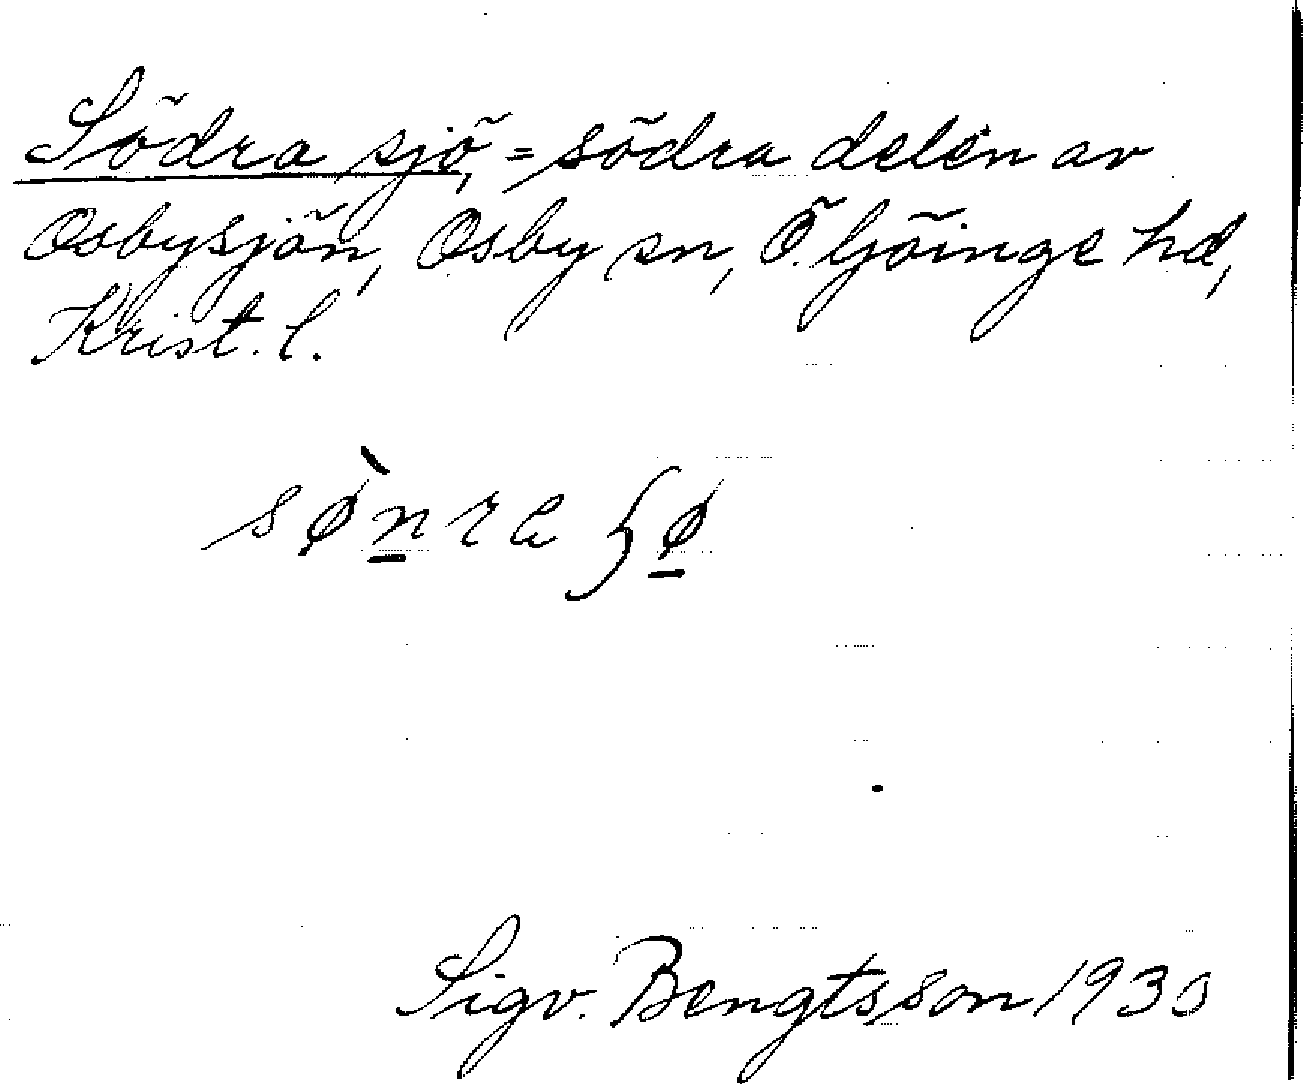 Södra sjö, = södra delen av
Osbysjön, Osby sn, Ö. Göinge hd,
Krist. l.
sø̀n̲re ʃø̲
Sigv. Bengtsson 1930